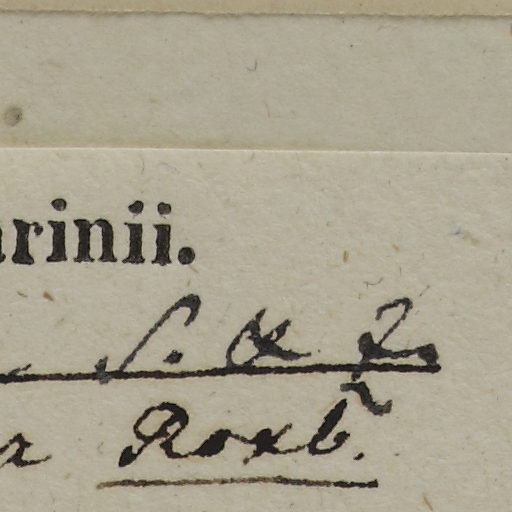 arinii.
S. & Z.
Roxb.